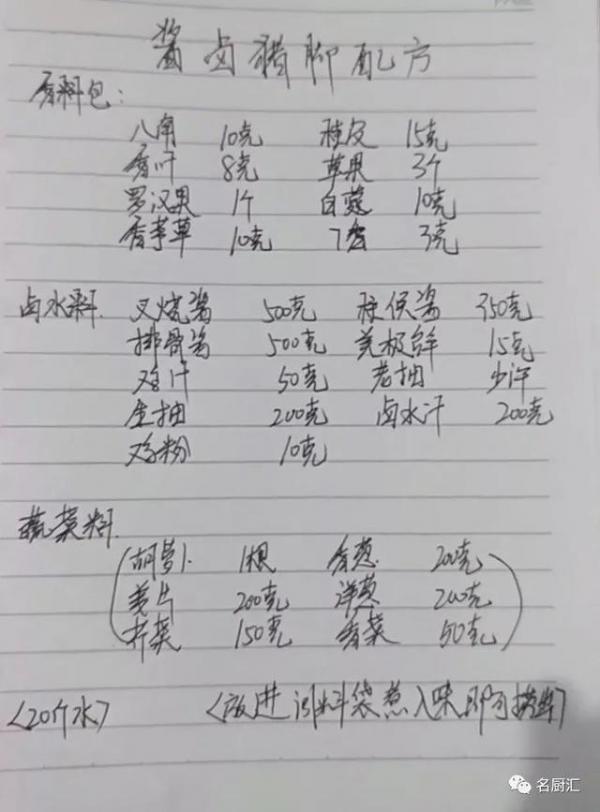 酱卤猪脚配方
香料包:
八角 10克 桂皮 15克
香叶 8克 草果 3个
罗汉果 1个 白蔻 10克
香茅草 10克 丁香 3克
卤水料. 叉烧酱 500克 柱侯酱 350克
排骨酱 500克 美极鲜 15克
鸡汁 50克 老抽 少许
生抽 200克 卤水汁 200克
鸡粉 10克
蔬菜料.
(胡萝卜 1根 香葱 200克
姜片 200克 洋葱 200克
芹菜 150克 香菜 50克)
<20斤水> <放进调料袋煮入味即可捞出>
名厨汇